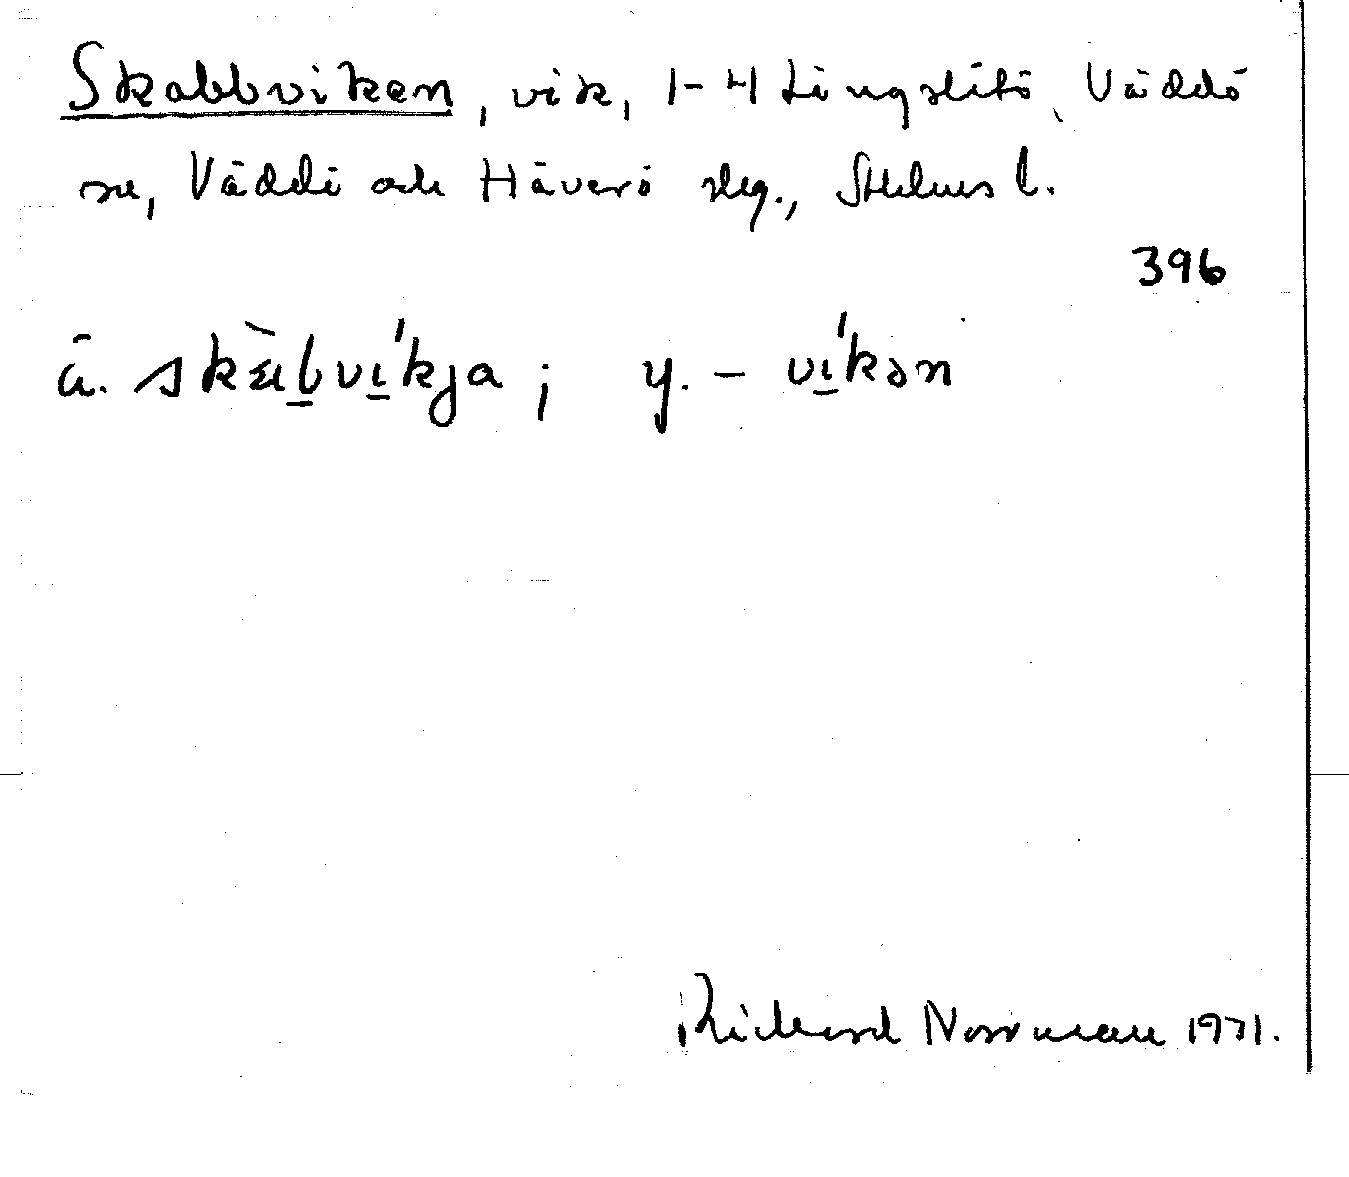 Skabbviken, vik, 1-4 Tingslätö, Väddö
sn, Väddö och Häverö slg., Sthlms l.
396
ä. skàbvíkja; y. - víkən
Richard Norrman 1971.